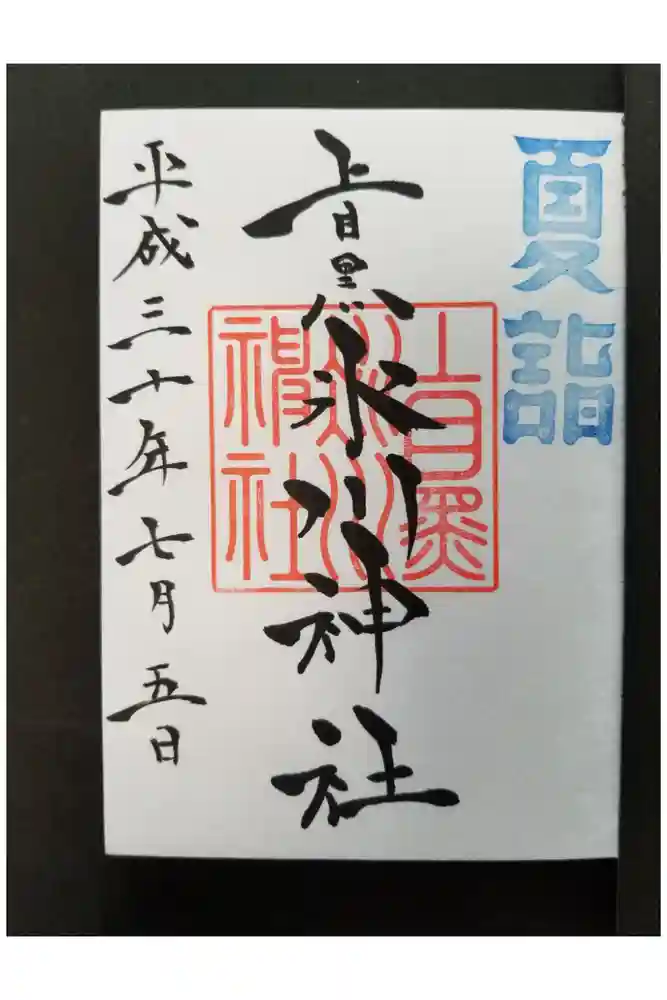 夏詣
上目黒氷川神社
上目黒
氷川
神社
平成三十年七月五日